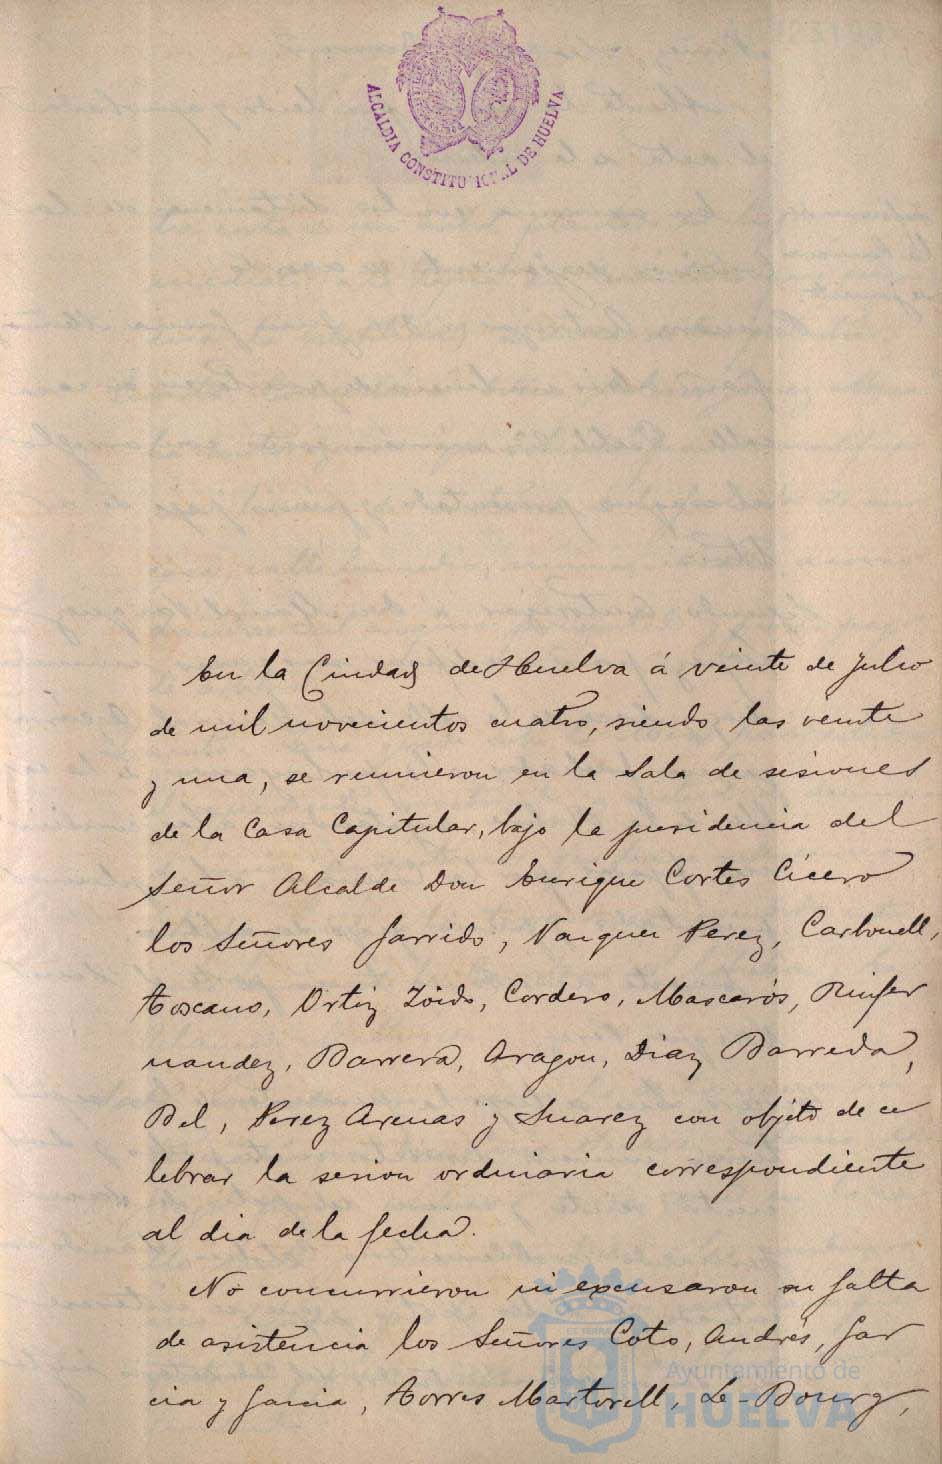 ALCALDIA CONSTITUCIONAL DE HUELVA
En la Ciudad de Huelva á veinte de Julio
de mil novecientos cuatro, siendo las veinte
y una, se reunieron en la Sala de sesiones
de la Casa Capitular, bajo la presidencia del
Señor Alcalde Don Enrique Cortes Cícero
los Señores Garrido, Vazquez Perez, Carbonell,
Toscano, Ortiz Zóido, Cordero, Mascarós, Rinfer
nandez, Barrera, Aragon, Diaz Barreda,
Bel, Perez Arenas y Suarez con objeto de ce
lebrar la sesion ordinaria correspondiente
al dia de la fecha.
No concurrieron ni excusaron su falta
de asistencia los Señores Coto, Andrés, Gar
cia y Garcia, Torres Martorell, Le-Bourg,
Ayuntamiento de
HUELVA